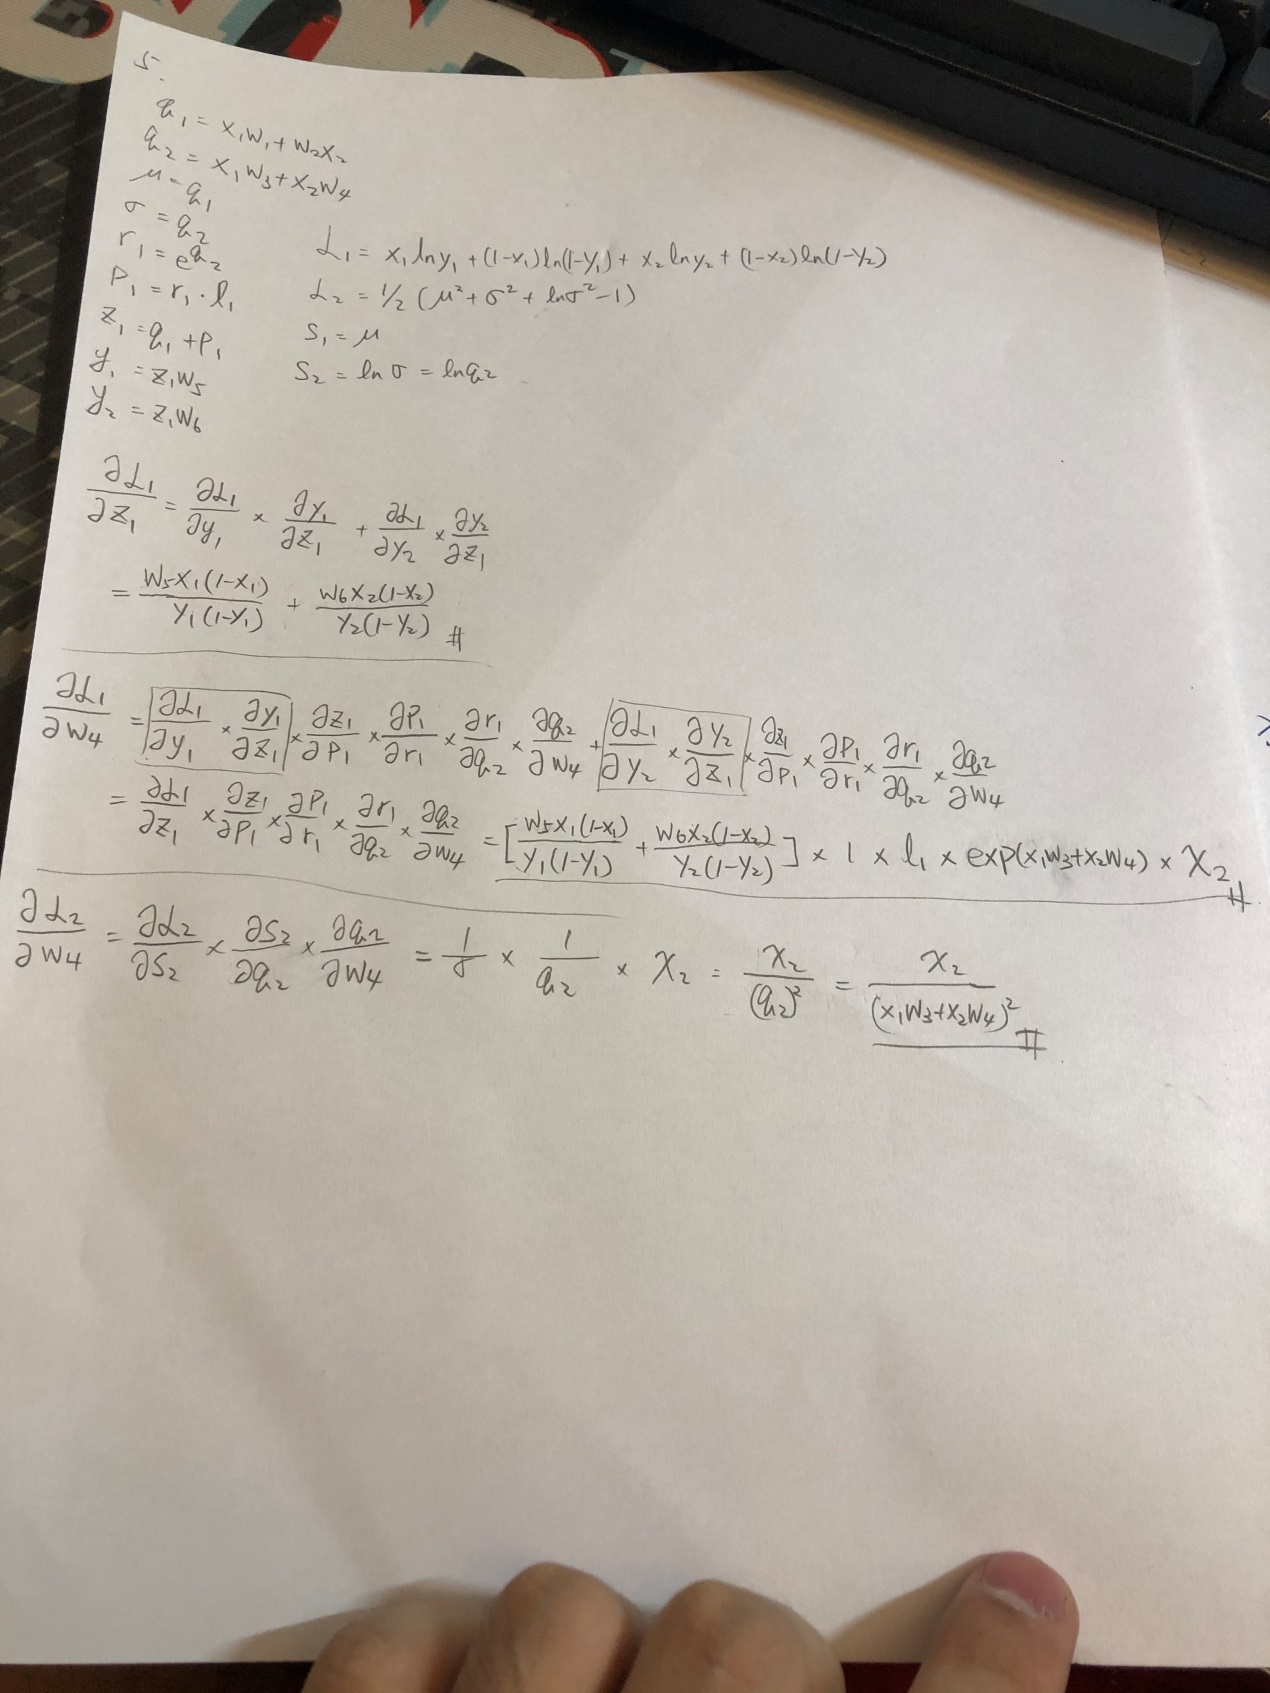 5.
q₁ = x₁w₁ + w₂x₂
q₂ = x₁w₃ + x₂w₄
μ = q₁
σ = q₂
r₁ = e^q₂
P₁ = r₁ · l₁
z₁ = q₁ + P₁
y₁ = z₁w₅
y₂ = z₁w₆
L₁ = x₁ ln y₁ + (1-x₁) ln(1-y₁) + x₂ ln y₂ + (1-x₂) ln(1-y₂)
L₂ = 1/2 (μ² + σ² + lnσ² - 1)
S₁ = μ
S₂ = ln σ = ln q₂
∂L₁/∂z₁ = ∂L₁/∂y₁ × ∂y₁/∂z₁ + ∂L₁/∂y₂ × ∂y₂/∂z₁
= w₅x₁(1-x₁)/y₁(1-y₁) + w₆x₂(1-x₂)/y₂(1-y₂) #
∂L₁/∂w₄ = ∂L₁/∂y₁ × ∂y₁/∂z₁ × ∂z₁/∂P₁ × ∂P₁/∂r₁ × ∂r₁/∂q₂ × ∂q₂/∂w₄ + ∂L₁/∂y₂ × ∂y₂/∂z₁ × ∂z₁/∂P₁ × ∂P₁/∂r₁ × ∂r₁/∂q₂ × ∂q₂/∂w₄
= ∂L₁/∂z₁ × ∂z₁/∂P₁ × ∂P₁/∂r₁ × ∂r₁/∂q₂ × ∂q₂/∂w₄ = [w₅x₁(1-x₁)/y₁(1-y₁) + w₆x₂(1-x₂)/y₂(1-y₂)] × 1 × l₁ × exp(x₁w₃+x₂w₄) × x₂ #
∂L₂/∂w₄ = ∂L₂/∂S₂ × ∂S₂/∂q₂ × ∂q₂/∂w₄ = 1/σ × 1/q₂ × x₂ = x₂/(q₂)² = x₂/(x₁w₃+x₂w₄)² #